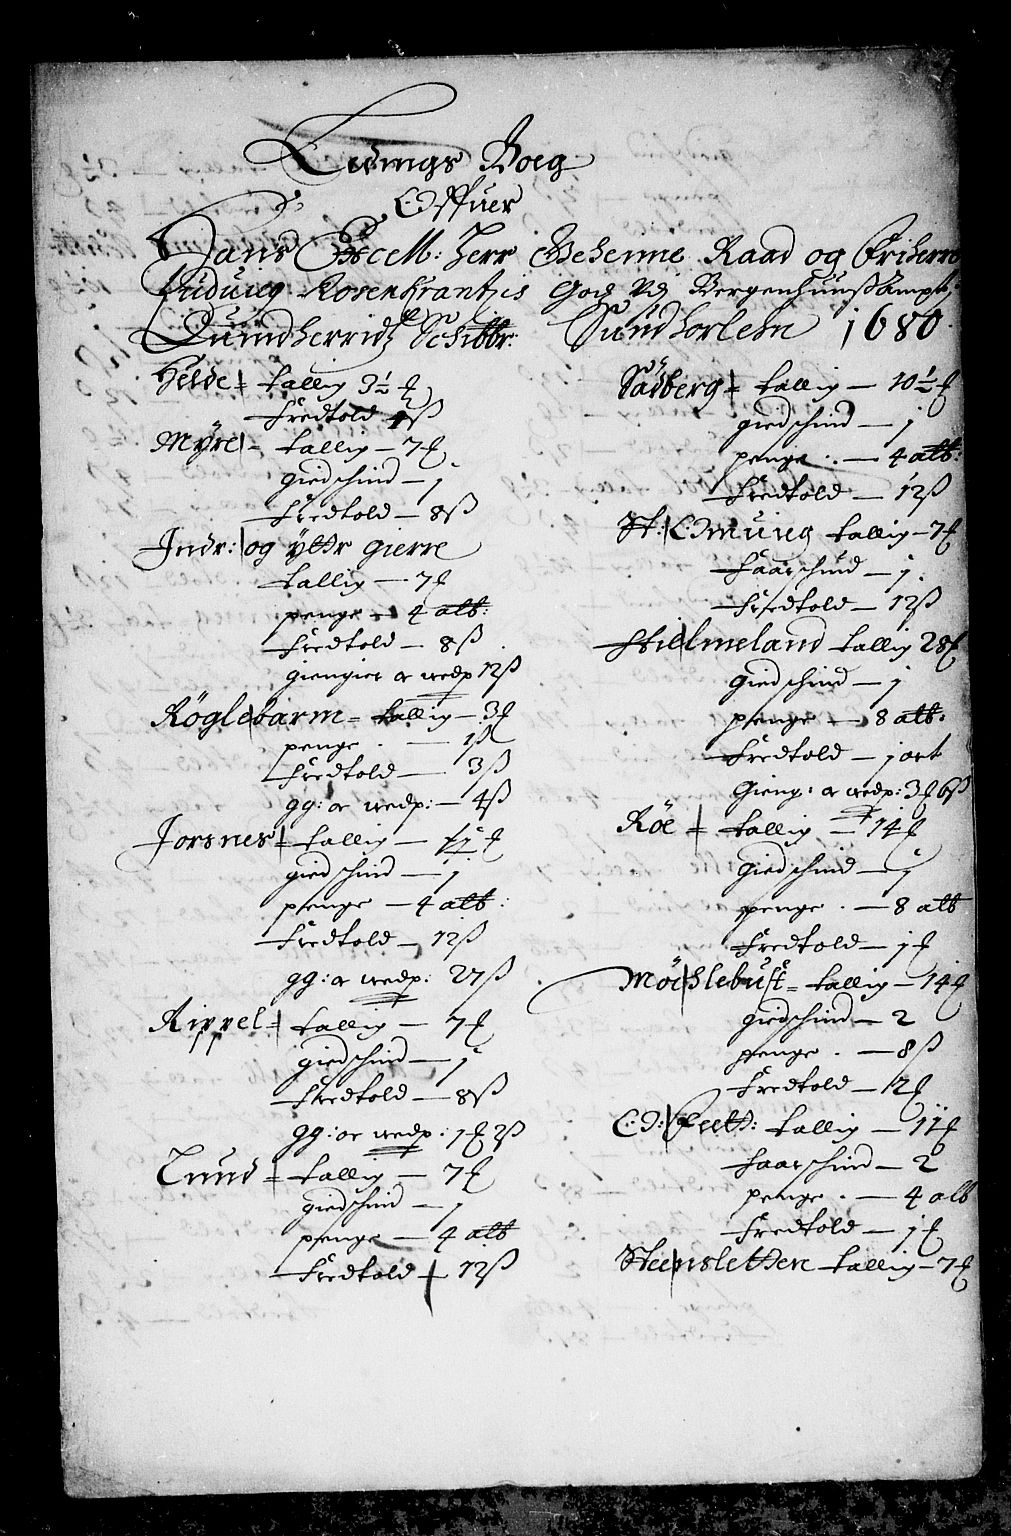 Ledings Boeg
Offuer
Hans Excell: Herr Geheime Raad og Friherre
Luduieg Rosenkrantzis Gods Vdj Bergenhuuss Ampt
Quindherridtz Schibbr: Sundhorlehn 1680
Helde = tallig 3½ ℔
Fredtold 4 ß
Myre = tallig - 7 ℔
giedschind - j
Fredtold - 8 ß
Indr: og yttr gierre
tallig - 7 ℔
penge - 4 alb:
Fredtold - 8 ß
giengier or wedp 12 ß
Røglebarm = tallig - 3 ℔
penge . - 1 ß
Fredtold - 3 ß
gg: or wedp: - 4 ß
Jorsnes = tallig - ℔
giedschind - j
penge - 4 alb:
Fredtold - 12 ß
gg: or wedp: 27 ß
Rippel = tallig - 7 ℔
giedschind - j
Fredtold - 8 ß
gg: or wedp: 1 ℔ 2 ß
Lund = tallig - 7 ℔
giedschind - j
penge - 4 alb
Fredtold - 12 ß
Sædberg = tallig - 10½ ℔
giedschind - j
penge . - 4 alb:
Fredtold - 12 ß
St: Omuieg tallig - 7 ℔
Faarschind - j.
Fredtold - 12 ß
Schielmeland tallig 28 ℔
giedschind - j
penge - 8 alb:
Fredtold - j ort
gieng: or wedp: 3 ℔ 6 ß
Røe = tallig - 14 ℔
giedschind - j
penge . - 8 alb
Fredtold - j ℔
Møchlebust = tallig - 14 ℔
giedschind - 2
penge . - 8 ß
Fredtold - 12 ℔
tallig - 11 ℔
Faarschind - 2
penge . - 4 alb
Fredtold - j ℔
Steenslettene tallig - 7 ℔